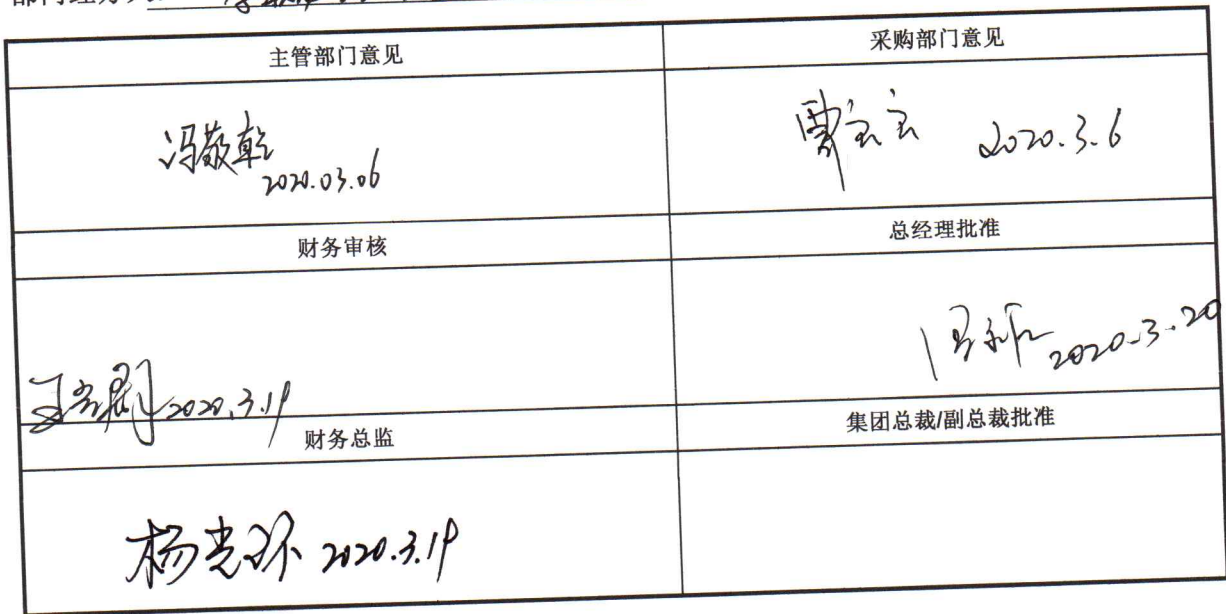 主管部门意见
采购部门意见
冯敬乾
2020.03.06
2020.3.6
财务审核
总经理批准
2020.3.20
2020.3.19
财务总监
集团总裁/副总裁批准
杨光环 2020.3.19